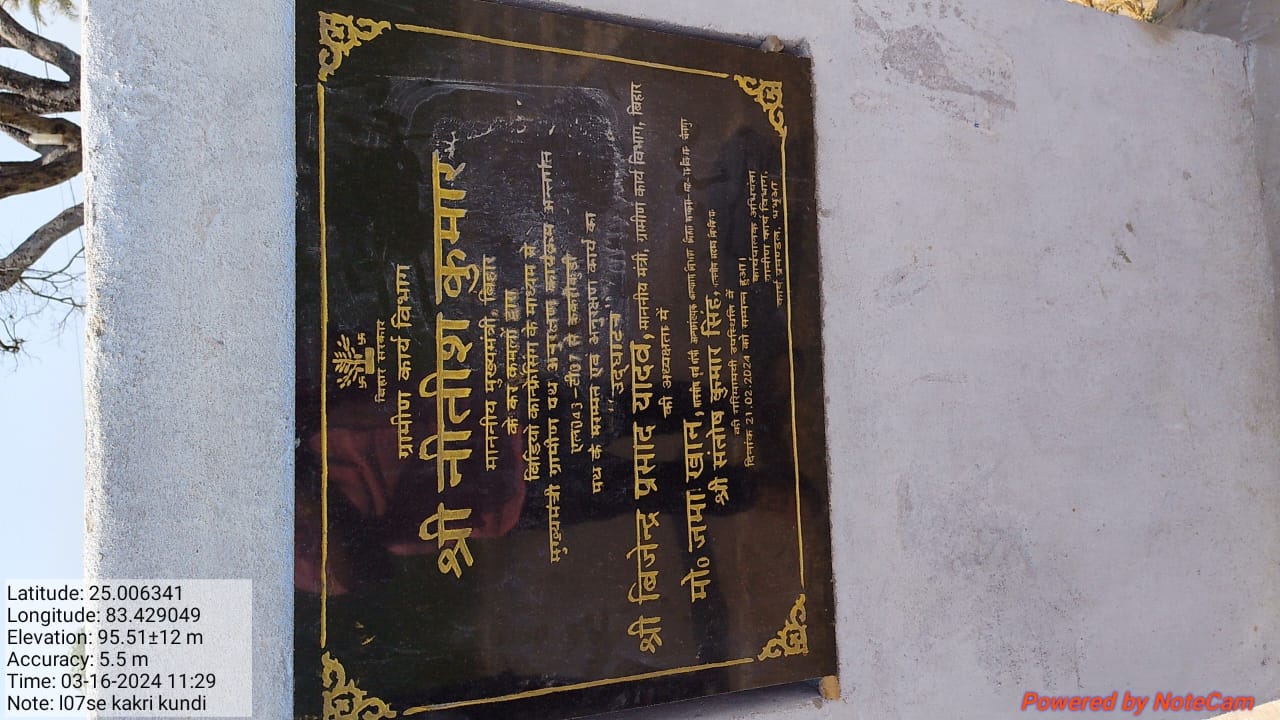 बिहार सरकार
ग्रामीण कार्य विभाग
श्री नीतीश कुमार
माननीय मुख्यमंत्री, बिहार
के कर कमलों द्वारा
विडियो कान्फ्रेसिंग के माध्यम से
मुख्यमंत्री ग्रामीण पथ अनुरक्षण कार्यक्रम अन्तर्गत
पथ के मरम्मत एवं अनुरक्षण कार्य का
"उद्घाटन"
श्री बिजेन्द्र प्रसाद यादव, माननीय मंत्री, ग्रामीण कार्य विभाग, बिहार
की अध्यक्षता में
मो० जमा खान,
श्री संतोष कुमार सिंह,
की गरिमामयी उपस्थिति में
दिनांक 21.02.2024 को सम्पन्न हुआ।
कार्यपालक अभियंता
ग्रामीण कार्य विभाग,
कार्य प्रमण्डल, भभुआ
Latitude: 25.006341
Longitude: 83.429049
Elevation: 95.51±12 m
Accuracy: 5.5 m
Time: 03-16-2024 11:29
Note: l07se kakri kundi
Powered by NoteCam